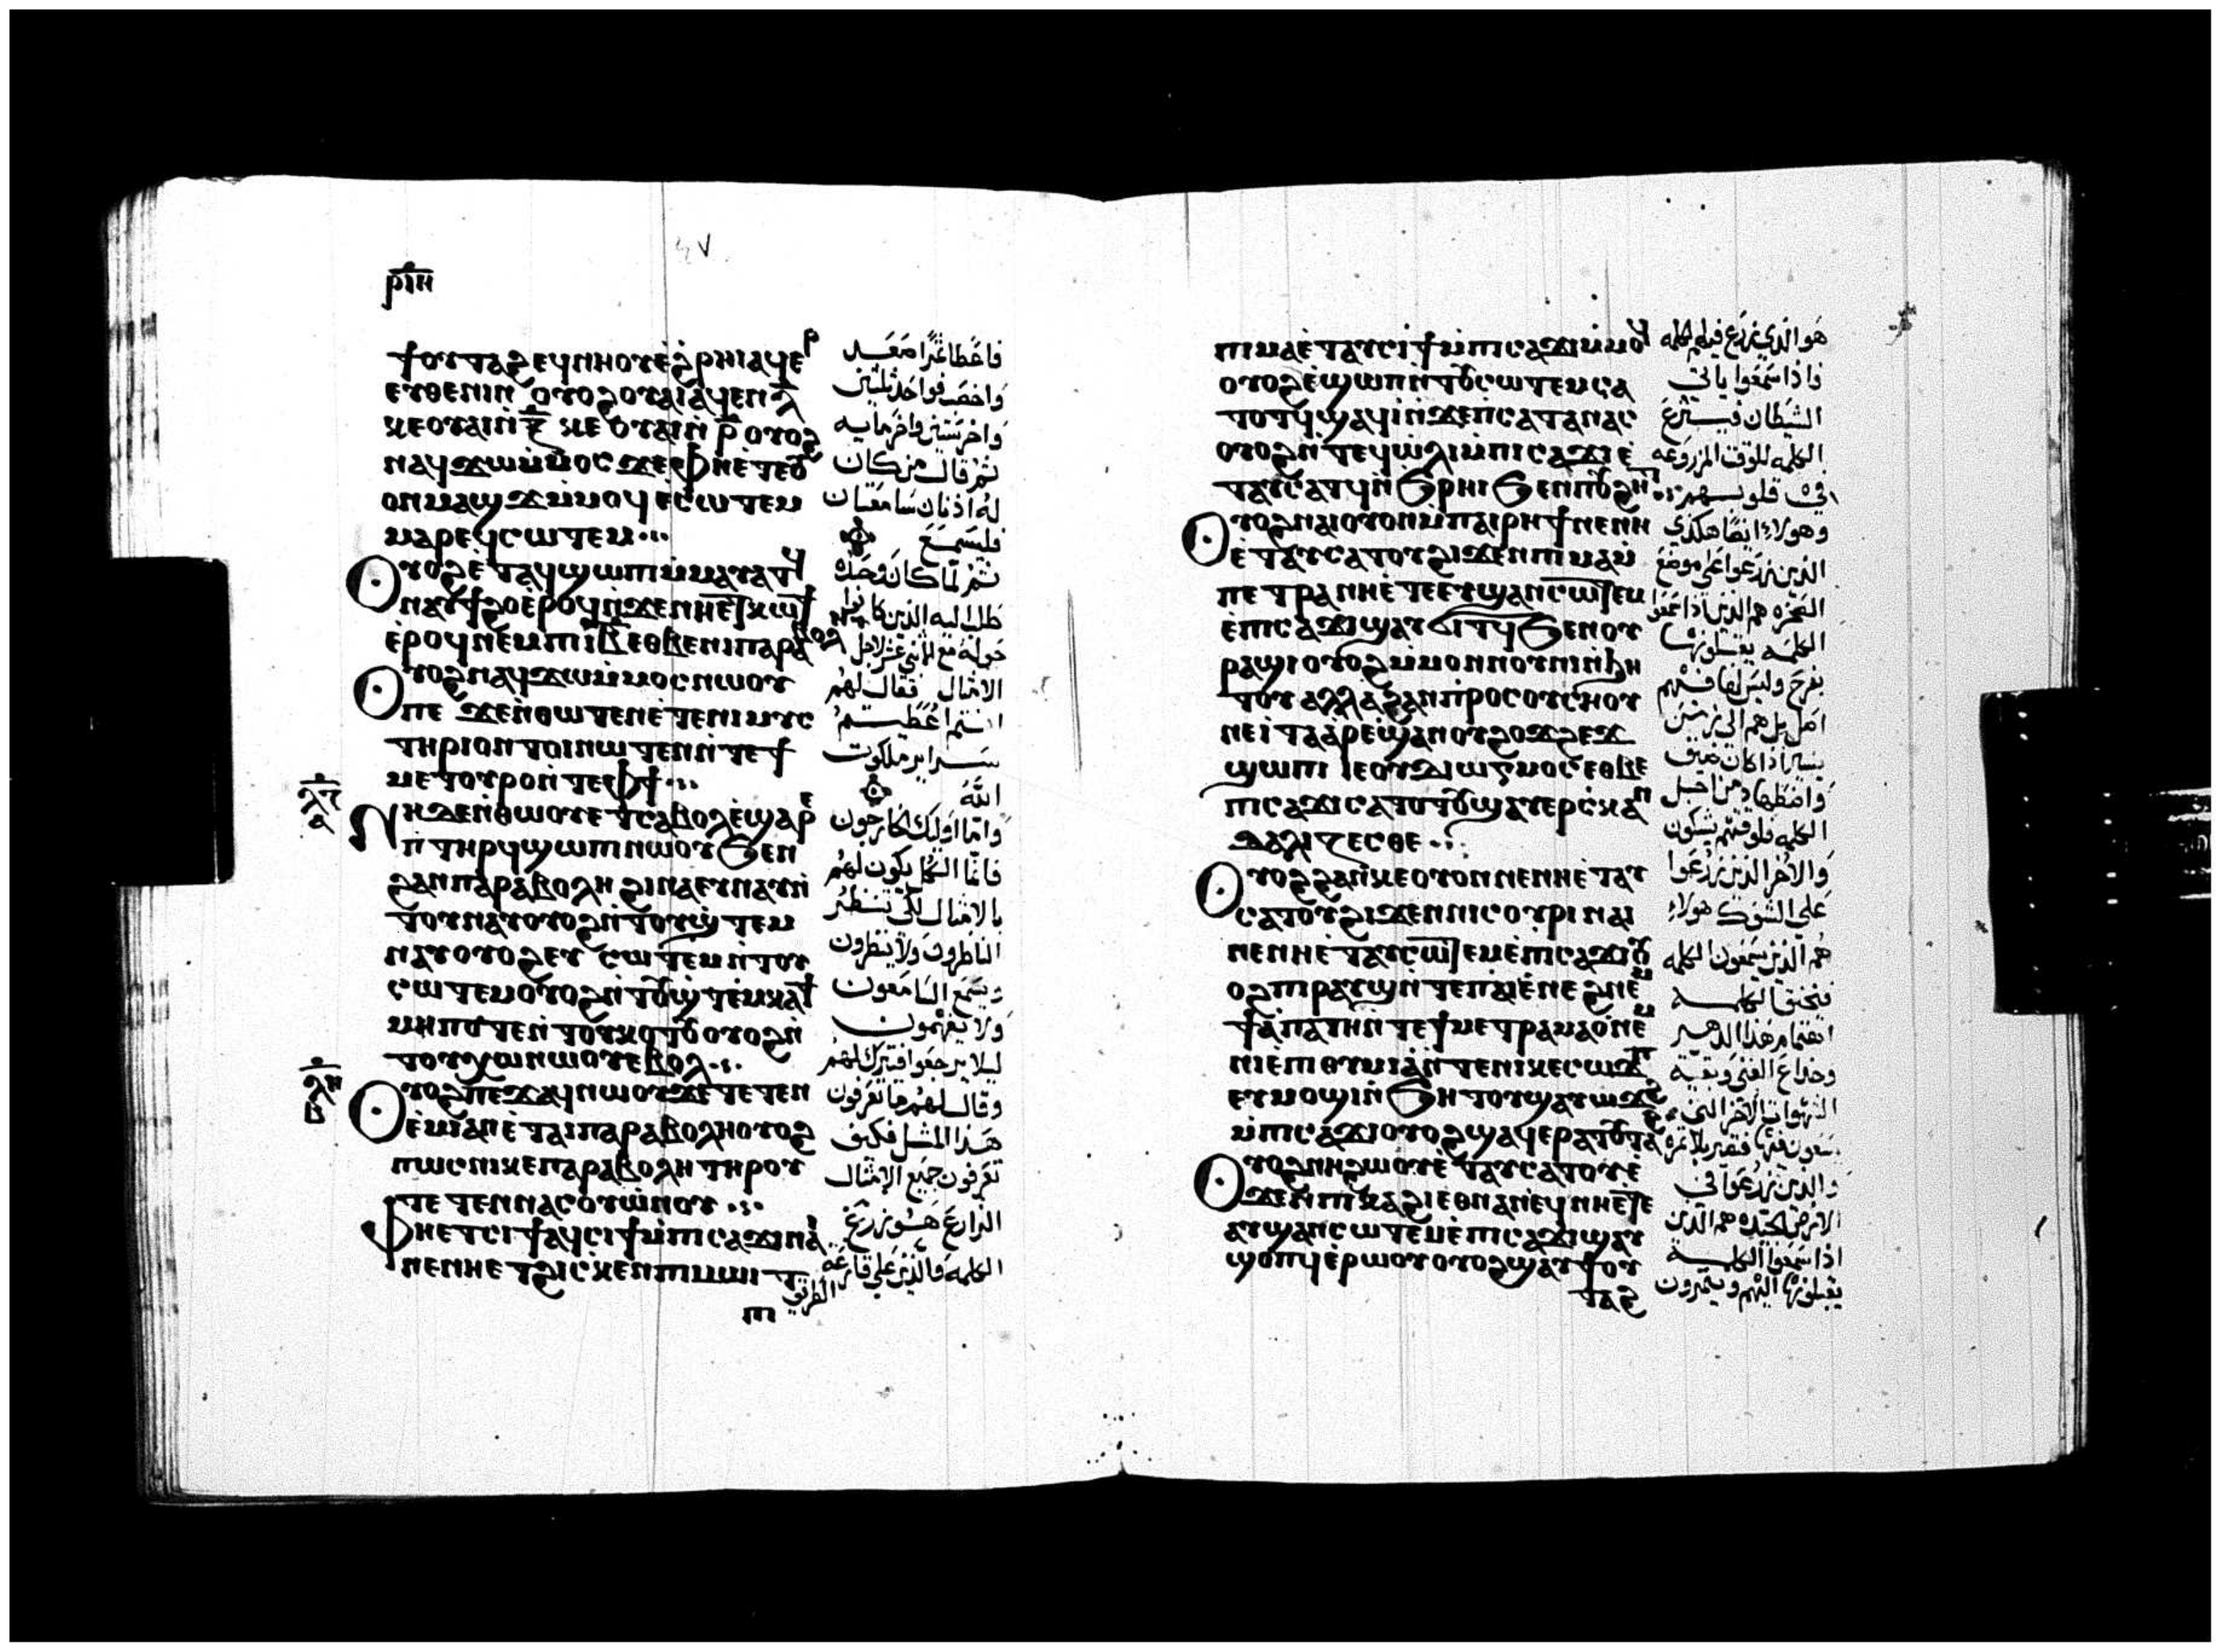 ⲣⲓⲏ
ϯⲟⲩⲧⲁϩ ⲉϥⲛⲏⲟⲩ ⲉ̀ϩⲣⲏⲓ ⲁϥⲉⲣ
ⲉⲩⲑⲉⲛⲓⲛ ⲟⲩⲟϩ ⲟⲩⲁⲓ ⲁϥⲉⲛ ⲗ̅
ⲕⲉⲟⲩⲁⲓ ⲛ̀ⲝ̅ ⲕⲉⲟⲩⲁⲓ ⲛ̀ⲣ̅ ⲟⲩⲟϩ
ⲛⲁϥϫⲱ ⲙ̀ⲙⲟⲥ ϫⲉ ⲫⲏ ⲉ̀ⲧⲉ ⲟⲩ
ⲟⲛ ⲙⲁϣϫ ⲙ̀ⲙⲟϥ ⲉ̀ⲥⲱⲧⲉⲙ
ⲙⲁⲣⲉϥⲥⲱⲧⲉⲙ
Ⲟⲩⲟϩ ⲉ̀ⲧⲁϥϣⲱⲡⲓ ⲙ̀ⲙⲁⲩⲁⲧϥ
ⲛⲁⲩϯϩⲟ ⲉ̀ⲣⲟϥ ⲛ̀ϫⲉ ⲛⲏ ⲉⲧⲕⲱϯ
ⲉ̀ⲣⲟϥ ⲛⲉⲙ ⲡⲓⲓ̅ⲃ̅ ⲉⲑⲃⲉ ⲛⲓⲡⲁⲣⲁⲃⲟⲗⲏ
Ⲟⲩⲟϩ ⲛⲁϥϫⲱ ⲙ̀ⲙⲟⲥ ⲛⲱⲟⲩ
ⲡⲉ ϫⲉ ⲛ̀ⲑⲱⲧⲉⲛ ⲉ̀ⲧⲉⲛⲓⲙⲩⲥ
ⲧⲏⲣⲓⲟⲛ ⲧⲟⲓ ⲛⲱⲧⲉⲛ ⲛ̀ⲧⲉ ϯ
ⲙⲉⲧⲟⲩⲣⲟ ⲛ̀ⲧⲉ ⲫϯ
ⲗⲍ
ⲁ
Ⲛⲏ ϫⲉ ⲛ̀ⲑⲱⲟⲩ ⲉⲧⲥⲁⲃⲟⲗ ⲉ̀ϣⲁⲣⲉ
ⲡⲧⲏⲣϥ ϣⲱⲡⲓ ⲛⲱⲟⲩ ϧⲉⲛ
ϩⲁⲛⲡⲁⲣⲁⲃⲟⲗⲏ ϩⲓⲛⲁ ⲉⲩⲛⲁⲩ ⲛ̀
ⲧⲟⲩⲛⲁⲩ ⲟⲩⲟϩ ⲛ̀ⲧⲟⲩϣⲧⲉⲙ
ⲛⲁⲩ ⲟⲩⲟϩ ⲉⲩⲥⲱⲧⲉⲙ ⲛ̀ⲧⲟⲩ
ⲥⲱⲧⲉⲙ ⲟⲩⲟϩ ⲛ̀ⲧⲟⲩϣⲧⲉⲙⲕⲁϯ
ⲙⲏⲡⲟⲧⲉ ⲛ̀ⲧⲟⲩⲕⲟⲧⲟⲩ ⲟⲩⲟϩ ⲛ̀
ⲧⲟⲩⲭⲱ ⲛⲱⲟⲩ ⲉⲃⲟⲗ
ⲗⲏ
ⲃ
Ⲟⲩⲟϩ ⲡⲉϫⲁϥ ⲛⲱⲟⲩ ϫⲉ ⲧⲉⲧⲉⲛ
ⲉ̀ⲙⲓ ⲁⲛ ⲉ̀ⲧⲁⲓⲡⲁⲣⲁⲃⲟⲗⲏ ⲟⲩⲟϩ
ⲡⲱⲥ ⲛⲓⲕⲉⲡⲁⲣⲁⲃⲟⲗⲏ ⲧⲏⲣⲟⲩ
ⲧⲉⲧⲉⲛⲛⲁⲥⲟⲩⲱⲛⲟⲩ
Ⲫⲏ ⲉⲧⲥⲓϯ ⲁϥⲥⲓϯ ⲙ̀ⲡⲓⲥⲁϫⲓ ⲛⲁⲓ
ⲛⲉ ⲛⲏ ⲉⲧϩⲓⲥⲕⲉⲛ ⲡⲓⲙⲱⲓⲧ
ⲡⲓ
فاعطا ثمرًا صعد
واخصب فواحد ثلثين
واخر ستين واخر مايه
ثم قال من كان
له اذنان سامعتان
فليسمع
ثم لما كان وحده
طلب اليه الذين كانوا
حوله مع الاثني عشر لاجل
الامثال فقال لهم
انتم اعطيتم
سراير ملكوت
الله
واما اوليك الخارجون
فانما الكل يكون لهم
بالامثال لكي ينظر
الناظرون ولا ينظرون
ويسمع السامعون
ولا يفهمون
ليلا يرجعوا فتترك لهم
وقال لهم ما تعرفون
هذا المثل فكيف
تعرفون جميع الامثال
الزارع هو زرع
الكلمه والذين علي قارعه
الطريق
ⲡⲓⲙⲁ ⲉ̀ⲧⲁⲩⲥⲓϯ ⲙ̀ⲡⲓⲥⲁϫⲓ ⲙ̀ⲙⲟϥ
ⲟⲩⲟϩ ⲉ̀ϣⲱⲡ ⲛ̀ⲧⲟⲩⲥⲱⲧⲉⲙ ⲥⲁ
ⲧⲟⲧϥ ϣⲁϥⲓ̀ ⲛ̀ϫⲉ ⲡ̀ⲥⲁⲧⲁⲛⲁⲥ
ⲟⲩⲟϩ ⲛ̀ⲧⲉϥⲱ̀ⲗⲓ ⲙ̀ⲡⲓⲥⲁϫⲓ ⲉ̀
ⲧⲁⲩⲥⲁⲧϥ ⲛ̀ϧⲣⲏⲓ ϧⲉⲛ ⲡⲟⲩϩⲏⲧ
Ⲟⲩⲟϩ ⲛⲁⲓ ⲟⲩⲟⲛ ⲙ̀ⲡⲁⲓⲣⲏϯ ⲛⲉ ⲛⲏ
ⲉ̀ⲧⲁⲩⲥⲁⲧⲟⲩ ϩⲓϫⲉⲛ ⲡⲓⲙⲁⲙ
ⲡⲉⲧⲣⲁ ⲛⲏ ⲉ̀ⲧⲉ ⲉⲩϣⲁⲛⲥⲱⲧⲉⲙ
ⲉ̀ⲡⲓⲥⲁϫⲓ ϣⲁⲩϭⲓⲧϥ ϧⲉⲛ ⲟⲩ
ⲣⲁϣⲓ ⲟⲩⲟϩ ⲙ̀ⲙⲟⲛ ⲛⲟⲩⲛⲓ ⲛ̀ϧⲏ
ⲧⲟⲩ ⲁⲗⲗⲁ ϩⲁⲛⲡⲣⲟⲥ ⲟⲩⲥⲏⲟⲩ
ⲛⲉ ⲓ̀ⲧⲁ ⲁⲣⲉϣⲁⲛ ⲟⲩϩⲟϫϩⲉϫ
ϣⲱⲡⲓ ⲓⲉ ⲟⲩⲇⲓⲱⲅⲙⲟⲥ ⲉⲑⲃⲉ
ⲡⲓⲥⲁϫⲓ ⲥⲁⲧⲟⲧⲟⲩ ϣⲁⲩⲉⲣⲥⲕⲁⲛ
ⲇⲁⲗⲓⲍⲉⲥⲑⲉ
Ⲟⲩⲟϩ ϩⲁⲛⲕⲉⲟⲩⲟⲛ ⲛⲉ ⲛⲏ ⲉ̀ⲧⲁⲩ
ⲥⲁⲧⲟⲩ ϩⲓϫⲉⲛ ⲛⲓⲥⲟⲩⲣⲓ ⲛⲁⲓ
ⲛⲉ ⲛⲏ ⲉ̀ⲧⲁⲩⲥⲱⲧⲉⲙ ⲉ̀ⲡⲓⲥⲁϫⲓ ⲟⲩ
ⲟϩ ⲡⲓⲣⲱⲟⲩϣ ⲛ̀ⲧⲉ ⲡⲁⲓⲉ̀ⲛⲉϩ ⲛⲉⲙ
ϯⲁⲡⲁⲧⲏ ⲛ̀ⲧⲉ ϯⲙⲉⲧⲣⲁⲙⲁⲟ̀ ⲛⲉⲙ
ⲛⲓⲉ̀ⲡⲓⲑⲩⲙⲓⲁ ⲛ̀ⲧⲉ ⲛⲓⲕⲉⲥⲱϫⲡ
ⲉⲩⲙⲟϣⲓ ⲛ̀ϧⲏⲧⲟⲩ ϣⲁⲩⲱϫϩ
ⲙ̀ⲡⲓⲥⲁϫⲓ ⲟⲩⲟϩ ϣⲁϥⲉⲣⲁⲧⲟⲩⲧⲁϩ
Ⲟⲩⲟϩ ⲛⲏ ϩⲱⲟⲩ ⲉ̀ⲧⲁⲩⲥⲁⲧⲟⲩ ⲉ̀
ϫⲉⲛ ⲡⲓⲕⲁϩⲓ ⲉⲑⲛⲁⲛⲉϥ ⲛⲏ ⲉⲧⲉ
ⲁⲩϣⲁⲛⲥⲱⲧⲉⲙ ⲉ̀ⲡⲓⲥⲁϫⲓ ϣⲁⲩ
ϣⲟⲡϥ ⲉ̀ⲣⲱⲟⲩ ⲟⲩⲟϩ ϣⲁⲩϯⲟⲩ
ⲧⲁϩ
هو الذي يزرع فيه الكلمه
واذا سمعوا ياتي
الشيطان فينتزع
الكلمه للوقت المزروعه
في قلوبهم
وهولاء ايضًا هكذي
الذين زرعوا علي موضع
الصخره هم الذين اذا سمعوا
الكلمه يقبلونها
بفرح وليس لها فيهم
اصل بل هم الي زمن
يسير اذا كان ضيق
واضطهاد من اجل
الكلمه فلوقتهم يشكون
والاخر الذين زرعوا
علي الشوك هولاء
هم الذين يسمعون الكلمه
فتخنق الكلمه
اهتمام هذا الدهر
وخداع الغني وبقية
الشهوات الاخر التي
يسعون فيها فتصير بلا ثمره
والذين زرعوا في
الارض الجيده هم الذين
اذا سمعوا الكلمه
يقبلونها اليهم ويثمرون